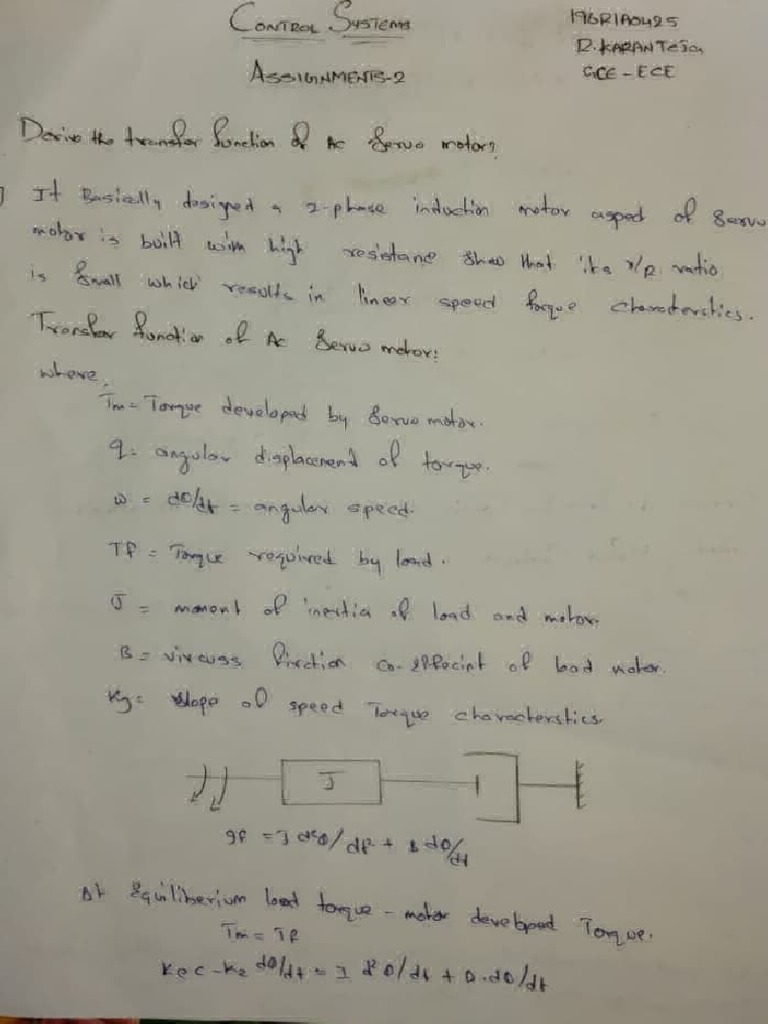 CONTROL SYSTEMS
ASSIGNMENTS-2
196R1A0425
D. KARAN Teja
GCE - ECE
Derive the transfer function of Ac Servo motor?
It Basically designed a 2-phase induction motor aspect of Servo
motor is built with high resistance show that its x/R ratio
is small which results in linear speed torque characterstics.
Transfer function of Ac Servo motor:
where,
Tm = Torque developed by Servo motor.
q = angular displacement of torque.
ω = dθ/dt = angular speed.
Tf = Torque required by load.
J = moment of inertia of load and motor.
B = viscuss friction co-efficint of load motor.
slope of speed Torque characterstics
J
= J d²θ/dt² + B dθ/dt
At Equiliberium load torque - motor developed Torque.
Tm = Tf
- K2 dθ/dt = J d²θ/dt + B.dθ/dt